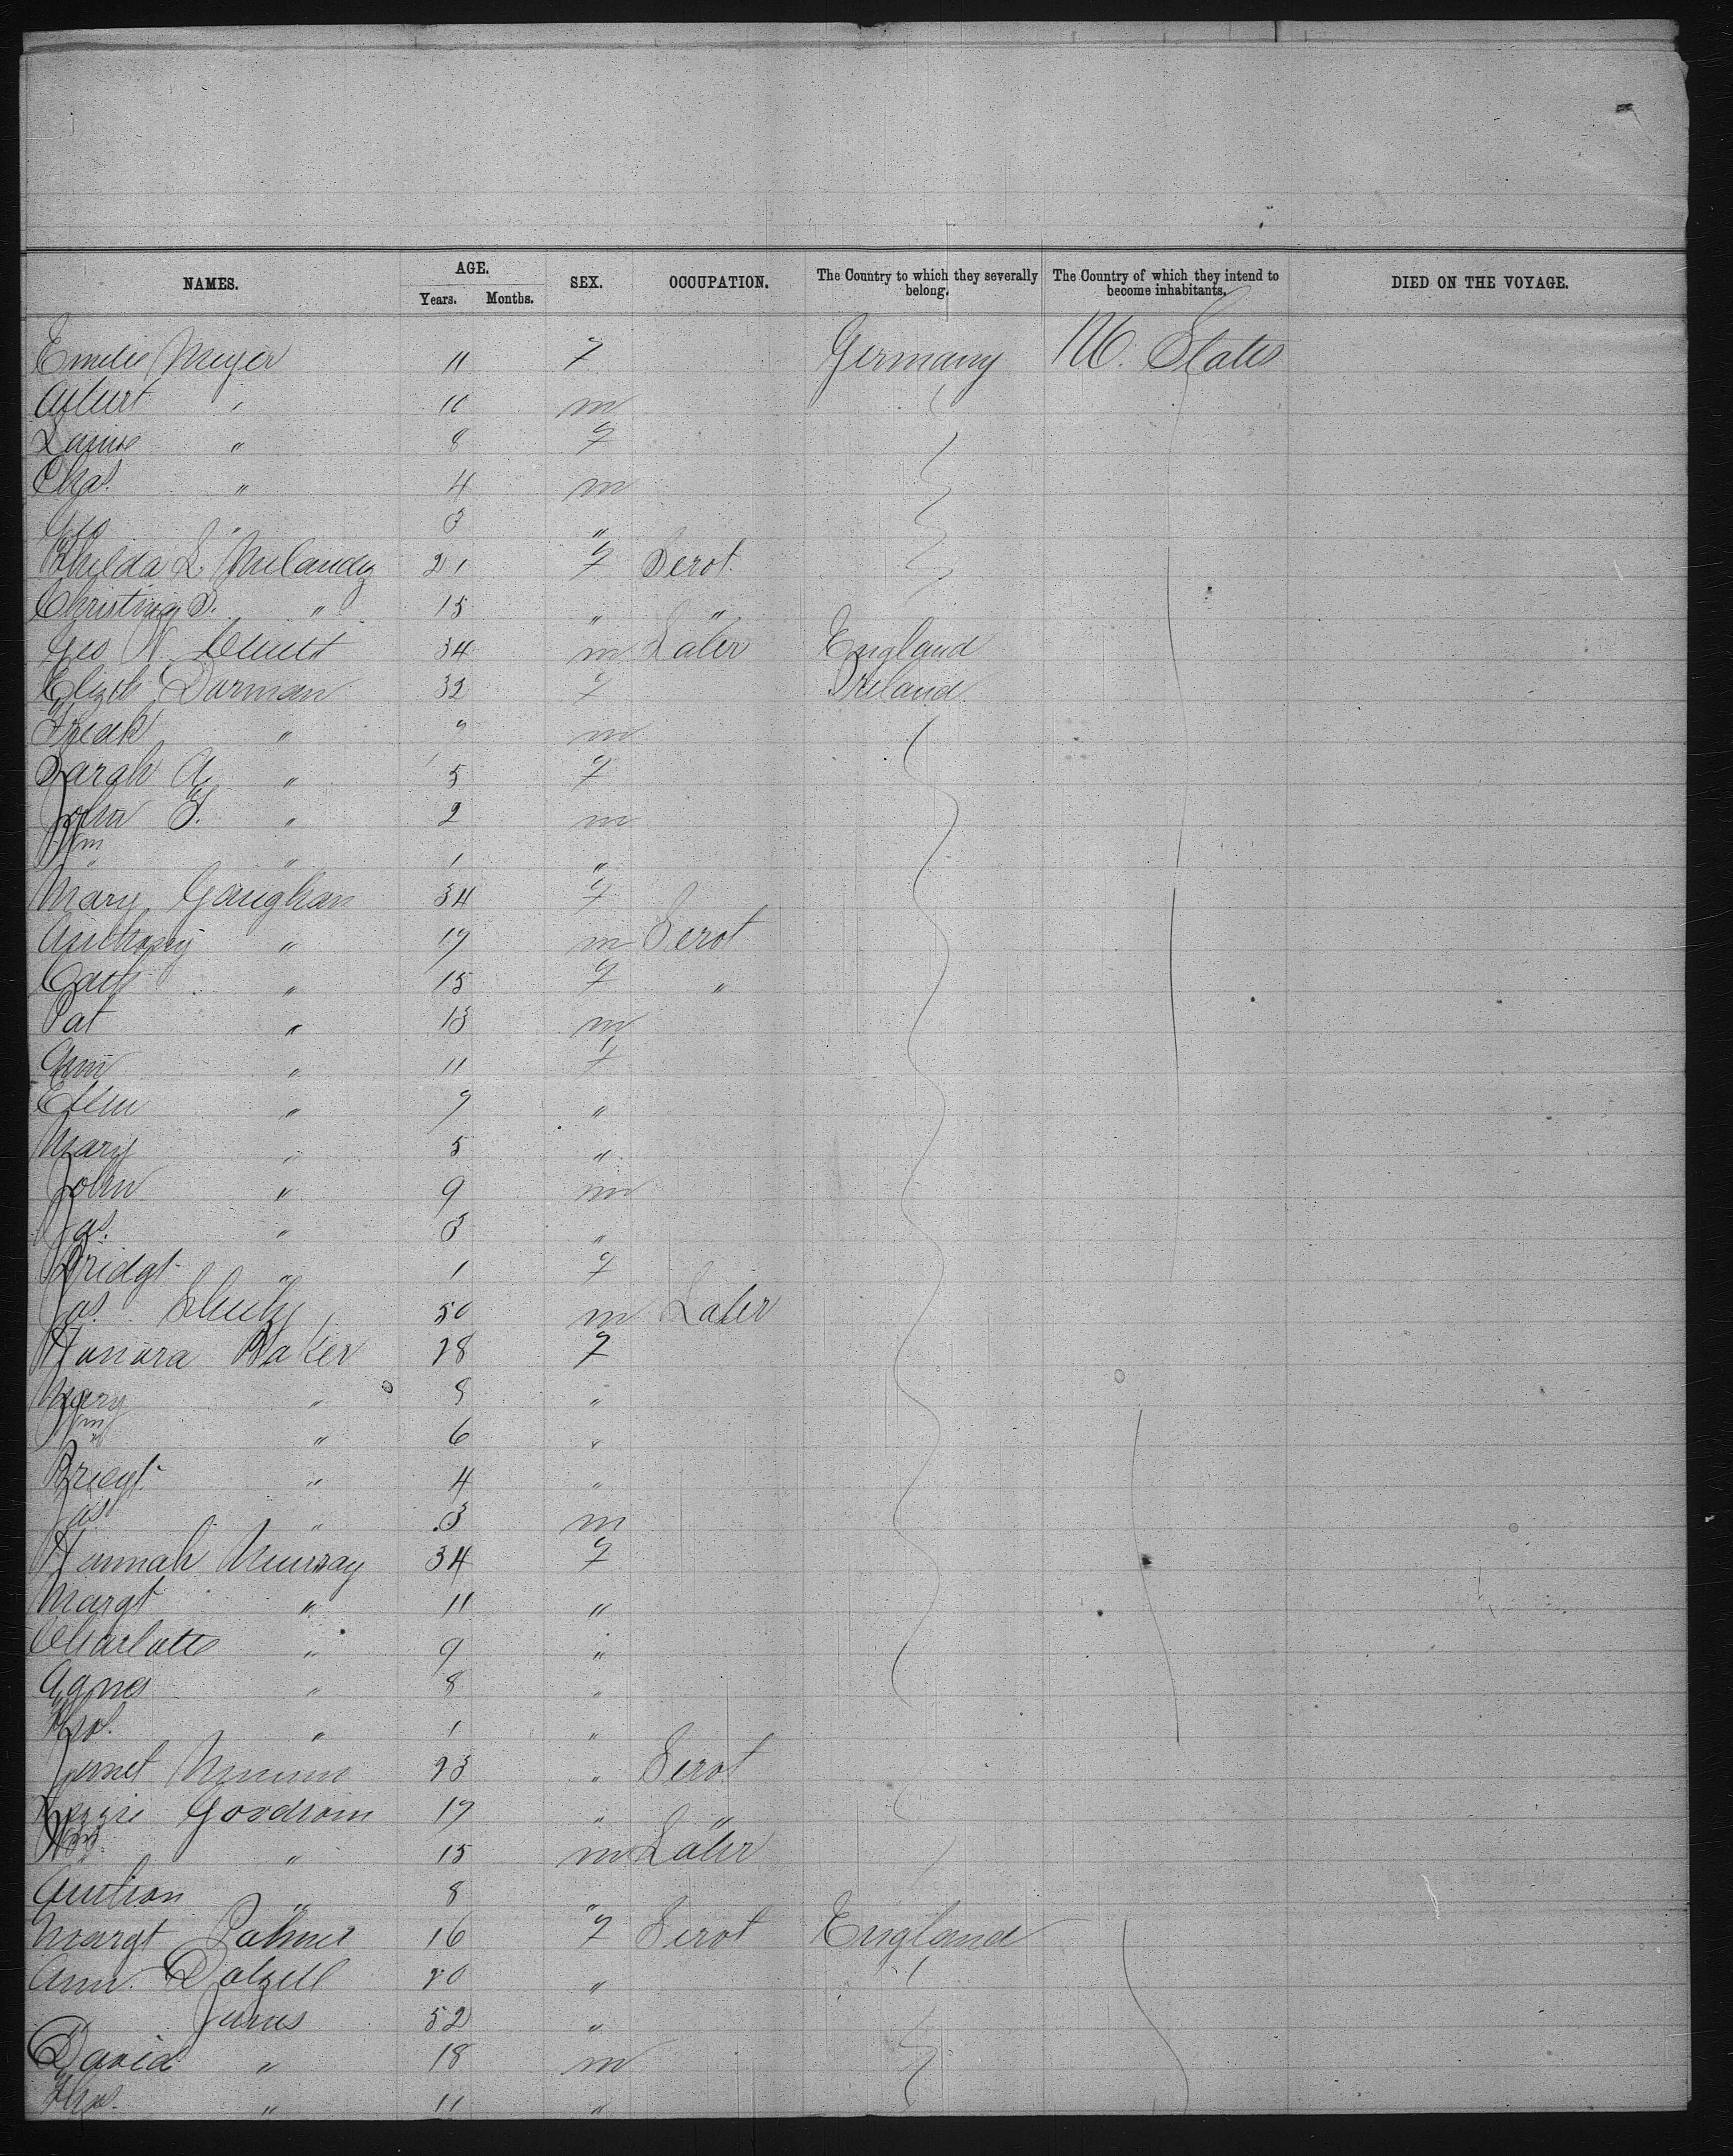 NAMES. AGE. SEX. OCCUPATION. The Country to which they severally belong. The Country of which they intend to become inhabitants. DIED ON THE VOYAGE.
Years. Months.
Emilie Meyer 11 f Germany U. States
Albert " 10 m
Louise " 8 f
Chas. " 4 m
Geo " 3 "
Hilda L. 21 f Servt.
Christina S. " 15 " "
Geo W. 34 m Laber England
Elizth Dorman 32 f Ireland
Fredk " 9 m
Sarah A. " 5 f
John T. " 2 m
Wm " 1 "
Mary Gaughan 34 f
Anthony " 19 m Servt
Cath " 15 f "
Pat " 13 m
Ann " 11 f
Ellen " 9 "
Mary " 5 "
John " 9 m
Jas. " 3 "
Bridgt " 1 f
Jas. 50 m Laber
Honora Baker 28 f
Mary " 8 "
Wm " 6 "
Bridgt " 4 "
Jas " 3 m
Hannah Murray 34 f
Margt " 11 "
Charlotte " 9 "
Agnes " 8 "
" 1 "
Jennet 23 " Servt.
Goodson 19 " "
Wm " 15 m Laber
" 8 "
Margt Palmer 16 f Servt England
Ann Dalzell 20 "
52 "
David " 18 m
Thos. " 11 "